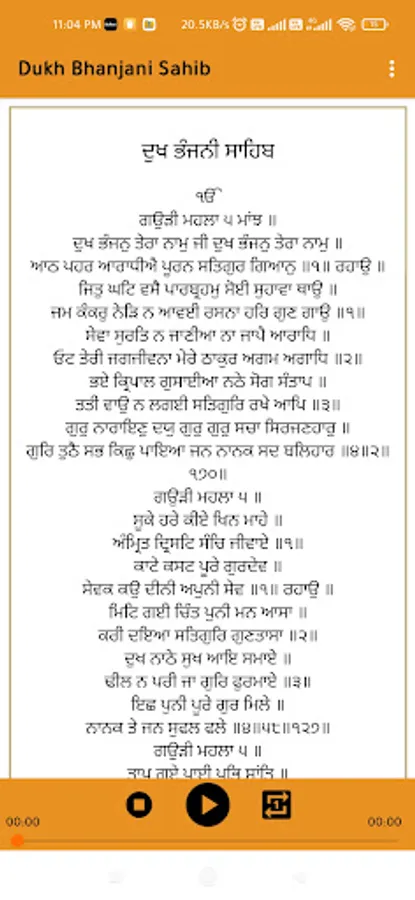 11:04 PM
20.5KB/s
4G
15
Dukh Bhanjani Sahib
ਦੁਖ ਭੰਜਨੀ ਸਾਹਿਬ
ੴ
ਗਉੜੀ ਮਹਲਾ ੫ ਮਾਂਝ ॥
ਦੁਖ ਭੰਜਨੁ ਤੇਰਾ ਨਾਮੁ ਜੀ ਦੁਖ ਭੰਜਨੁ ਤੇਰਾ ਨਾਮੁ ॥
ਆਠ ਪਹਰ ਆਰਾਧੀਐ ਪੂਰਨ ਸਤਿਗੁਰ ਗਿਆਨੁ ॥੧॥ ਰਹਾਉ ॥
ਜਿਤੁ ਘਟਿ ਵਸੈ ਪਾਰਬ੍ਰਹਮੁ ਸੋਈ ਸੁਹਾਵਾ ਥਾਉ ॥
ਜਮ ਕੰਕਰੁ ਨੇੜਿ ਨ ਆਵਈ ਰਸਨਾ ਹਰਿ ਗੁਣ ਗਾਉ ॥੧॥
ਸੇਵਾ ਸੁਰਤਿ ਨ ਜਾਣੀਆ ਨਾ ਜਾਪੈ ਆਰਾਧਿ ॥
ਓਟ ਤੇਰੀ ਜਗਜੀਵਨਾ ਮੇਰੇ ਠਾਕੁਰ ਅਗਮ ਅਗਾਧਿ ॥੨॥
ਭਏ ਕ੍ਰਿਪਾਲ ਗੁਸਾਈਆ ਨਠੇ ਸੋਗ ਸੰਤਾਪ ॥
ਤਤੀ ਵਾਉ ਨ ਲਗਈ ਸਤਿਗੁਰਿ ਰਖੇ ਆਪਿ ॥੩॥
ਗੁਰੁ ਨਾਰਾਇਣੁ ਦਯੁ ਗੁਰੁ ਗੁਰੁ ਸਚਾ ਸਿਰਜਣਹਾਰੁ ॥
ਗੁਰਿ ਤੁਠੈ ਸਭ ਕਿਛੁ ਪਾਇਆ ਜਨ ਨਾਨਕ ਸਦ ਬਲਿਹਾਰ ॥੪॥੨॥
੧੭੦॥
ਗਉੜੀ ਮਹਲਾ ੫ ॥
ਸੂਕੇ ਹਰੇ ਕੀਏ ਖਿਨ ਮਾਹੇ ॥
ਅੰਮ੍ਰਿਤ ਦ੍ਰਿਸਟਿ ਸੰਚਿ ਜੀਵਾਏ ॥੧॥
ਕਾਟੇ ਕਸਟ ਪੂਰੇ ਗੁਰਦੇਵ ॥
ਸੇਵਕ ਕਉ ਦੀਨੀ ਅਪੁਨੀ ਸੇਵ ॥੧॥ ਰਹਾਉ ॥
ਮਿਟਿ ਗਈ ਚਿੰਤ ਪੁਨੀ ਮਨ ਆਸਾ ॥
ਕਰੀ ਦਇਆ ਸਤਿਗੁਰਿ ਗੁਣਤਾਸਾ ॥੨॥
ਦੁਖ ਨਾਠੇ ਸੁਖ ਆਇ ਸਮਾਏ ॥
ਢੀਲ ਨ ਪਰੀ ਜਾ ਗੁਰਿ ਫੁਰਮਾਏ ॥੩॥
ਇਛ ਪੁਨੀ ਪੂਰੇ ਗੁਰ ਮਿਲੇ ॥
ਨਾਨਕ ਤੇ ਜਨ ਸੁਫਲ ਫਲੇ ॥੪॥੫੮॥੧੨੭॥
ਗਉੜੀ ਮਹਲਾ ੫ ॥
ਤਾਪ ਗਏ ਪਾਈ ਪ੍ਰਭਿ ਸਾਂਤਿ ॥
1
00:00
00:00